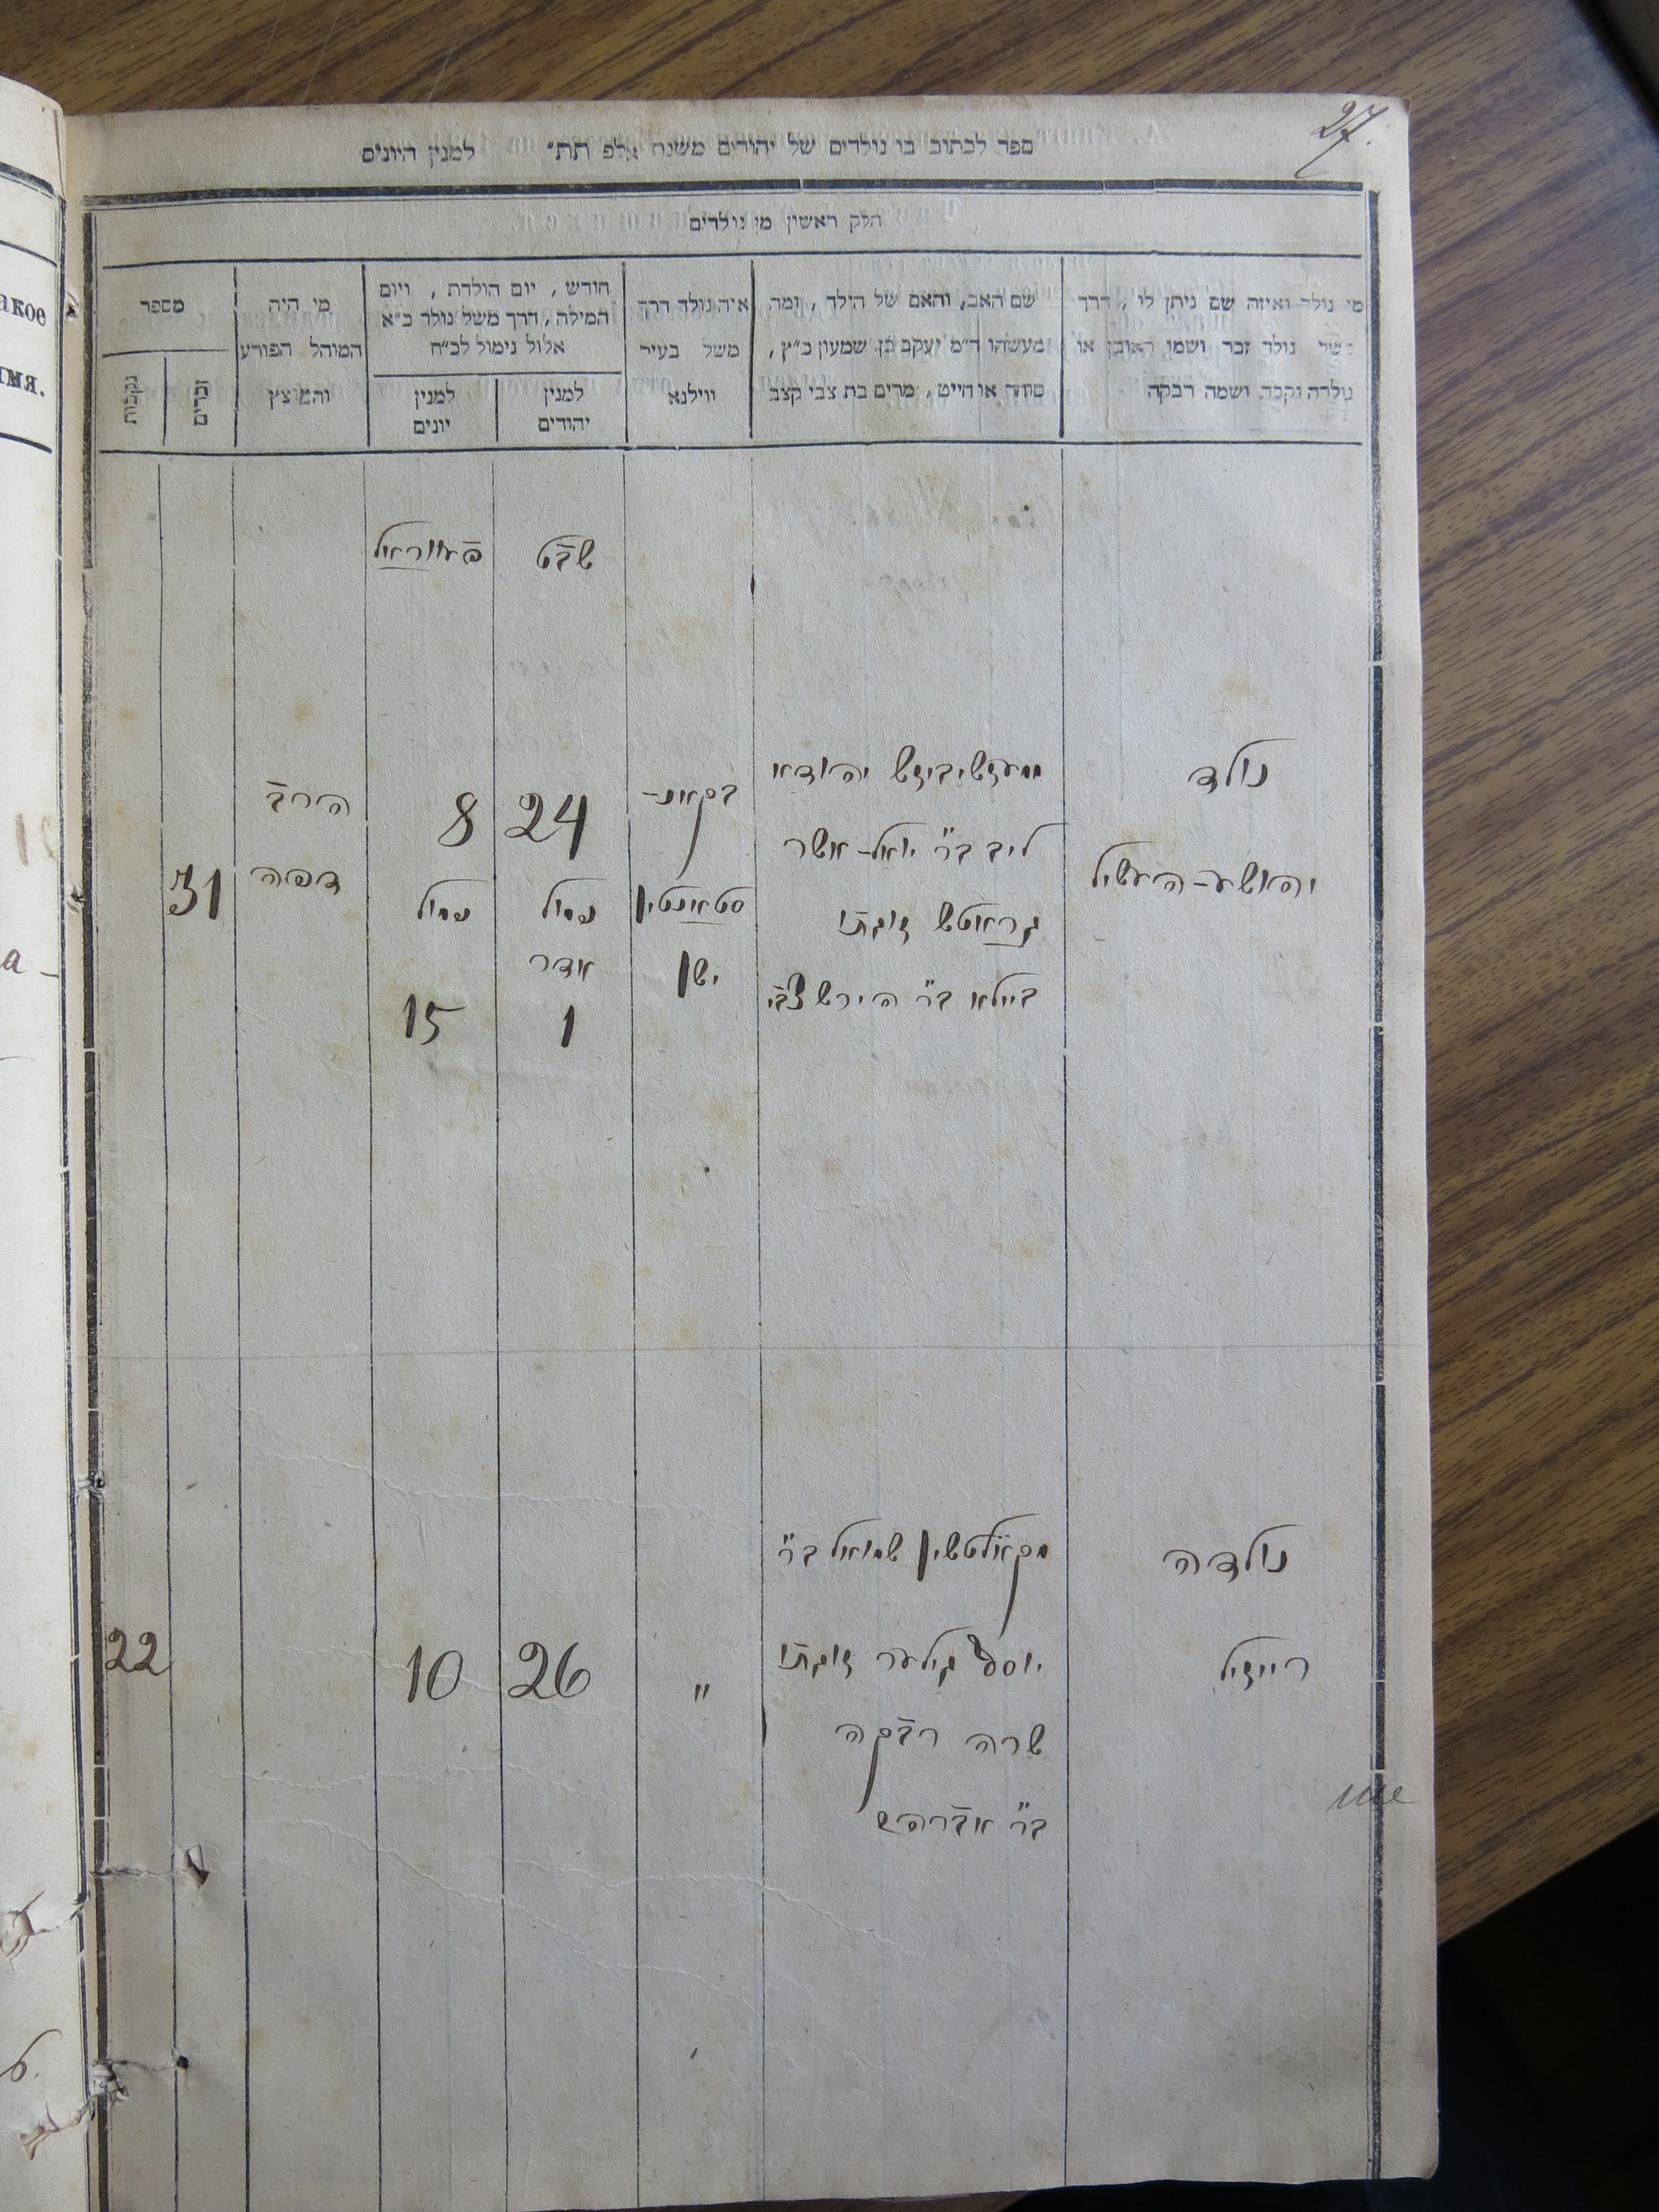 27.
ספר לכתוב בו נולדים של יהודים משנת אלפ תת״ למנין היונים
חלק ראשון מן נולדים
מי נולד ואיזה שם ניתן לו, דרך
משל נולד זכר ושמו ראובן או
נולדה נקבה ושמה רבקה
שם האב, והאם של הילד, ומה
מעשהו ה״מ יעקב בן שמעון כ״ץ,
סוחר או חייט, מרים בת צבי קצב
איה נולד דרך
משל בעיר
ווילנא
חודש, יום הולדת, ויום
המילה, דרך משל נולד כ״א
אלול נימול לכ״ח
למנין
יהודים
למנין
יונים
מי היה
המוהל הפורע
והמוצץ
מספר
זכרים
נקבות
שבט
פעווראיל
נולד
יהושע-העשיל
יהודא
ליב ב״ר יואל-אשר
זוגתו
ביילא ב״ר הירש צבי
בקאנ-
סטאנטין
ישן
24
נמול
אדר
1
8
נמול
15
הרב
דפה
31
נולדה
רייזיל
שמואל ב״ר
יוסף זוגתו
שרה רבקה
ב״ר אברהם
"
26
10
22
акое
имя.